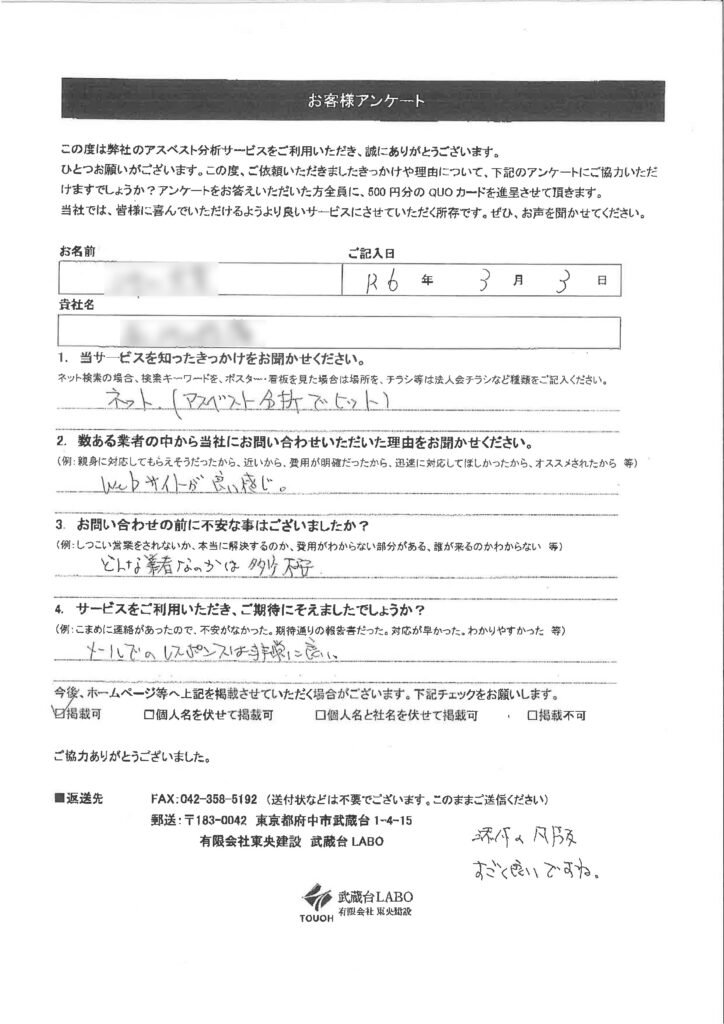 お客様アンケート
この度は弊社のアスベスト分析サービスをご利用いただき、誠にありがとうございます。
ひとつお願いがございます。この度、ご依頼いただきましたきっかけや理由について、下記のアンケートにご協力いただ
けますでしょうか？アンケートをお答えいただいた方全員に、500円分のQUOカードを進呈させて頂きます。
当社では、皆様に喜んでいただけるようより良いサービスにさせていただく所存です。ぜひ、お声を聞かせてください。
お名前
ご記入日
R6 年 3 月 3 日
貴社名
1. 当サービスを知ったきっかけをお聞かせください。
ネット検索の場合、検索キーワードを、ポスター・看板を見た場合は場所を、チラシ等は法人会チラシなど種類をご記入ください。
ネット.(アスベスト分析でヒット)
2. 数ある業者の中から当社にお問い合わせいただいた理由をお聞かせください。
(例：親身に対応してもらえそうだったから、近いから、費用が明確だったから、迅速に対応してほしかったから、オススメされたから 等)
Webサイトが良い感じ。
3. お問い合わせの前に不安な事はございましたか？
(例：しつこい営業をされないか、本当に解決するのか、費用がわからない部分がある、誰が来るのかわからない 等)
どんな業者なのかは
4. サービスをご利用いただき、ご期待にそえましたでしょうか？
(例：こまめに連絡があったので、不安がなかった。期待通りの報告書だった。対応が早かった。わかりやすかった 等)
メールでのレスポンスは非常に良い。
今後、ホームページ等へ上記を掲載させていただく場合がございます。下記チェックをお願いします。
☑掲載可 □個人名を伏せて掲載可 □個人名と社名を伏せて掲載可 □掲載不可
ご協力ありがとうございました。
■返送先 FAX：042-358-5192 (送付状などは不要でございます。このままご送信ください)
郵送：〒183-0042 東京都府中市武蔵台1-4-15
有限会社東央建設 武蔵台LABO
添付の
すごく良いですね。
武蔵台LABO
有限会社 東央建設
TOUOH